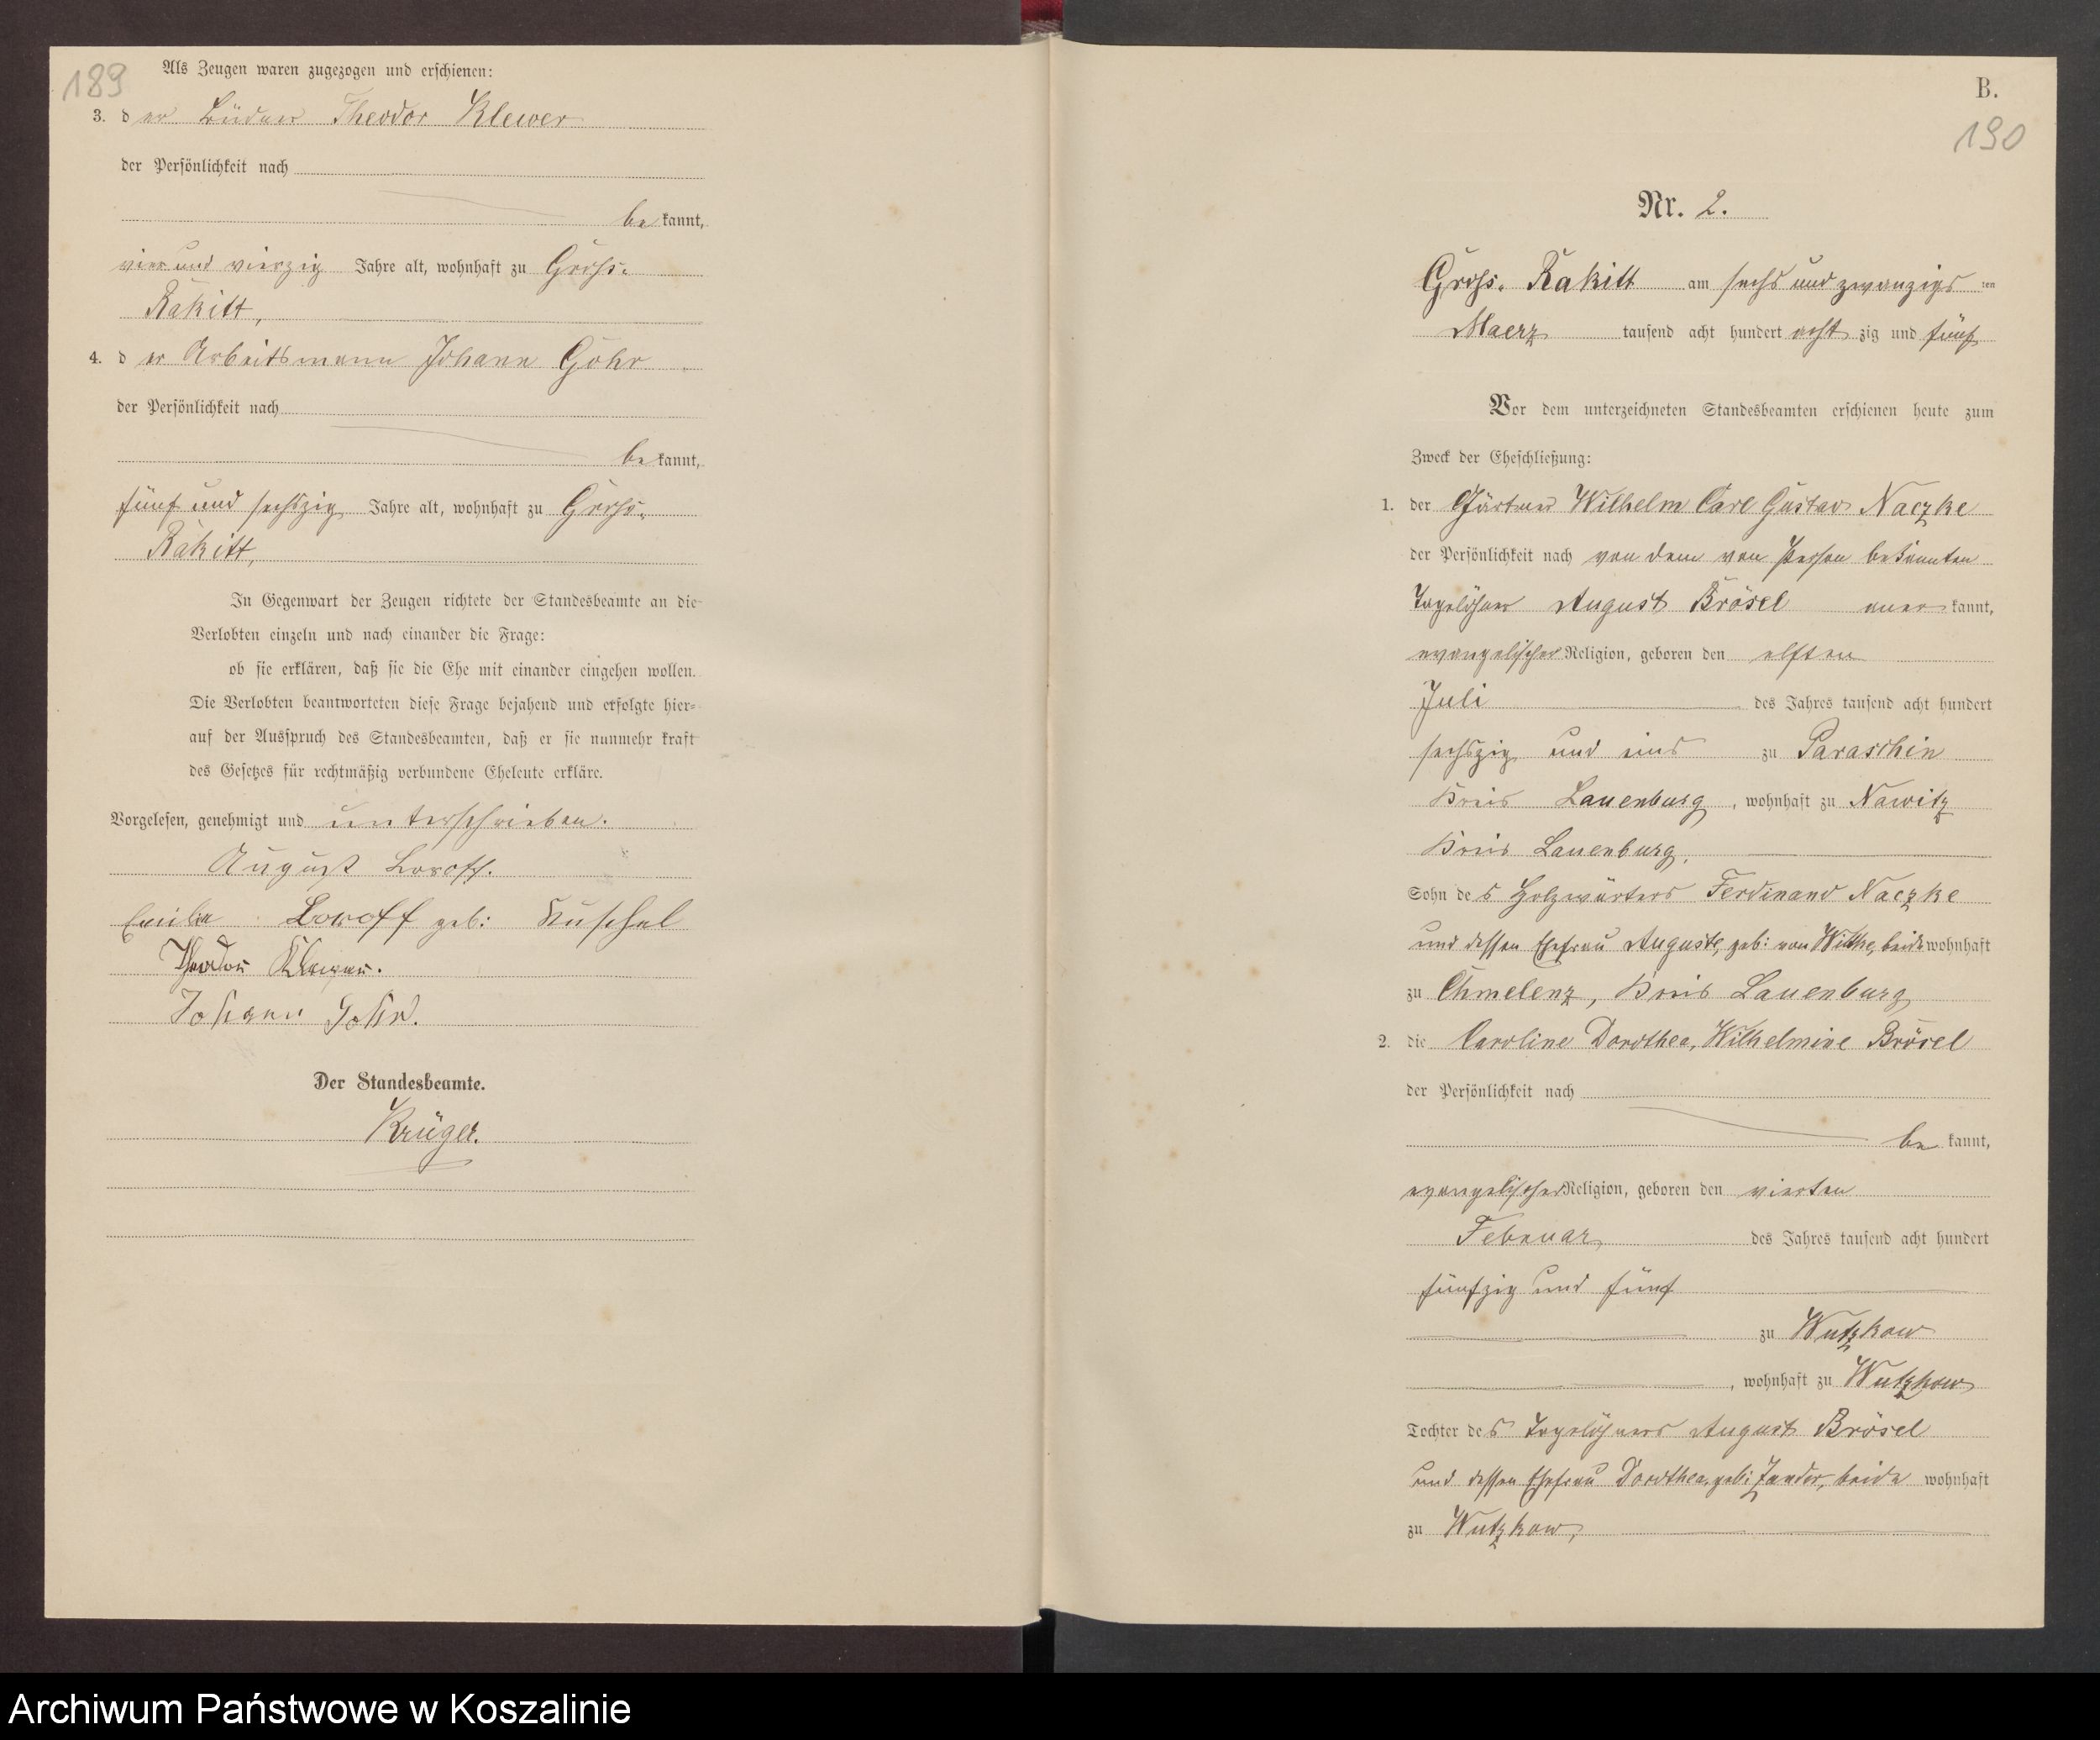 189
Als Zeugen waren zugezogen und erschienen:
3. der Büdner Theodor Klewer
der Persönlichkeit nach
bekannt,
vier und vierzig Jahre alt, wohnhaft zu Gross-
Rakitt,
4. der Arbeitsmann Johann Göhr
der Persönlichkeit nach
bekannt,
fünf und sechszig Jahre alt, wohnhaft zu Gross-
Rakitt,
In Gegenwart der Zeugen richtete der Standesbeamte an die
Verlobten einzeln und nach einander die Frage:
ob sie erklären, daß sie die Ehe mit einander eingehen wollen.
Die Verlobten beantworteten diese Frage bejahend und erfolgte hier-
auf der Ausspruch des Standesbeamten, daß er sie nunmehr kraft
des Gesetzes für rechtmäßig verbundene Eheleute erkläre.
Vorgelesen, genehmigt und unterschrieben.
August Lowoff.
Emilie Lowoff geb: Kuschel
Theodor Klewer.
Johann Gohr.
Der Standesbeamte.
Krüger.
B.
190
Nr. 2.
Gross-Rakitt am sechs und zwanzigsten
Maerz tausend acht hundert achtzig und fünf
Vor dem unterzeichneten Standesbeamten erschienen heute zum
Zweck der Eheschließung:
1. der Gärtner Wilhelm Carl Gustav Naczke
der Persönlichkeit nach von dem von Person bekannten
Tagelöhner August Brösel anerkannt,
evangelischer Religion, geboren den elften
Juli des Jahres tausend acht hundert
sechszig und eins zu Paraschin
Kreis Lauenburg, wohnhaft zu Nawitz
Kreis Lauenburg,
Sohn des Holzwärters Ferdinand Naczke
und dessen Ehefrau Auguste, geb: von Witke, beide wohnhaft
zu Chmelenz, Kreis Lauenburg
2. die Caroline Dorothea, Wilhelmine Brösel
der Persönlichkeit nach
bekannt,
evangelischer Religion, geboren den vierten
Februar des Jahres tausend acht hundert
fünfzig und fünf
zu Wutzkow
, wohnhaft zu Wutzkow
Tochter des Tagelöhners August Brösel
und dessen Ehefrau Dorothea, geb: Zander, beide wohnhaft
zu Wutzkow,
Archiwum Państwowe w Koszalinie